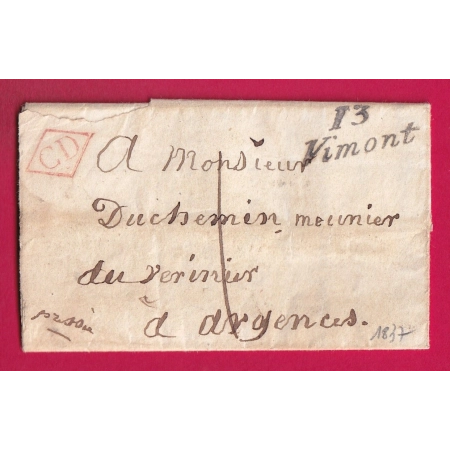 CD
13
Vimont
A Monsieur
Duchemin, meunier
du verinier
à argences.
pressée
1837